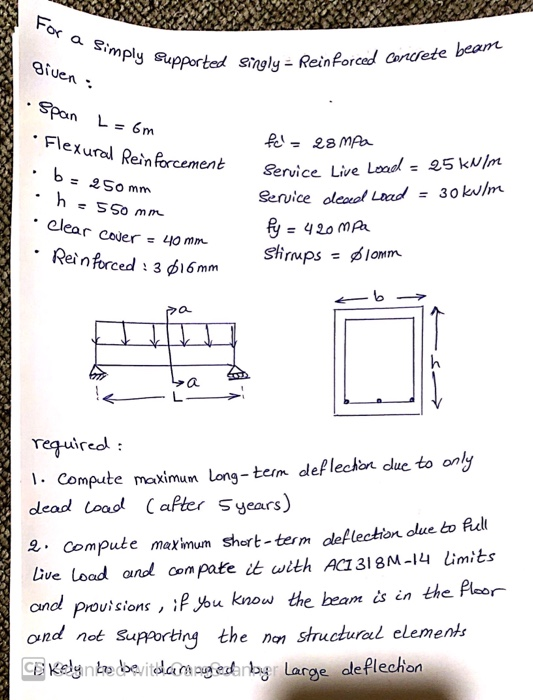 For a simply supported singly-Reinforced concrete beam
given :
• Span L = 6m
fc' = 28 MPa
• Flexural Reinforcement
Service Live Load = 25 kN/m
• b = 250 mm
Service dead Load = 30 kN/m
• h = 550 mm
fy = 420 MPa
• clear cover = 40 mm
Stirrups = ϕ10mm
• Reinforced : 3 ϕ16mm
a
a
L
b
h
required :
1. Compute maximum Long-term deflection due to only
dead Load (after 5 years)
2. compute maximum short-term deflection due to full
Live Load and compare it with ACI 318M-14 limits
and provisions, if you know the beam is in the floor
and not supporting the non structural elements
likely to be damaged by Large deflection
CS Scanned with CamScanner